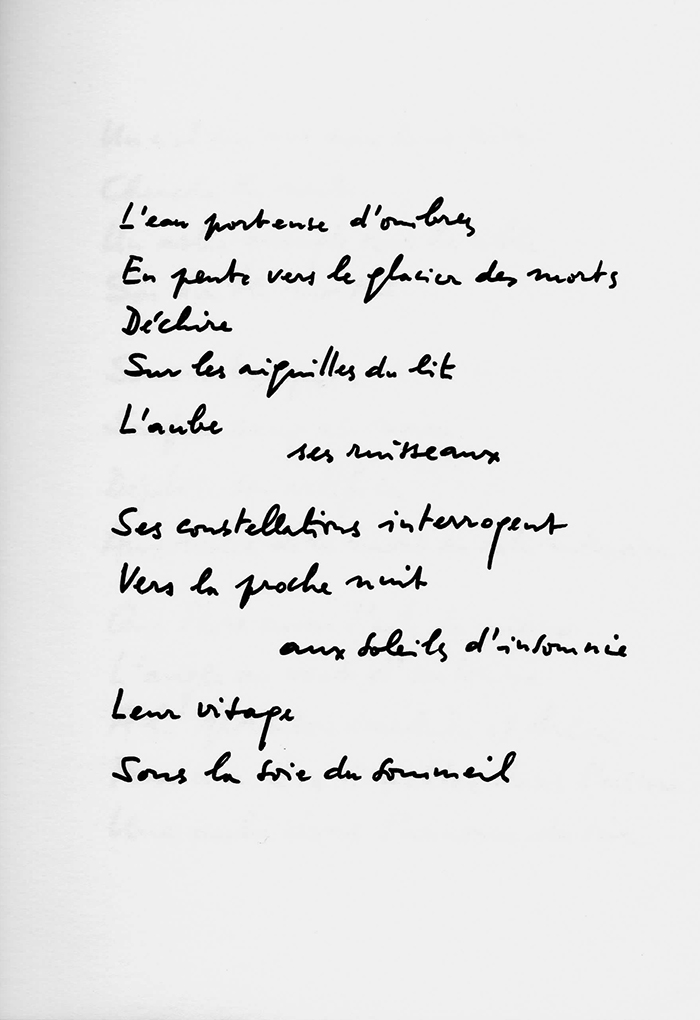 L'eau porteuse d'ombres
En pente vers le glacier des morts
Déchire
Sur les aiguilles du lit
L'aube
ses ruisseaux
Ses constellations interrogent
Vers la proche nuit
aux soleils d'insomnie
Leur visage
Sous la soie du sommeil